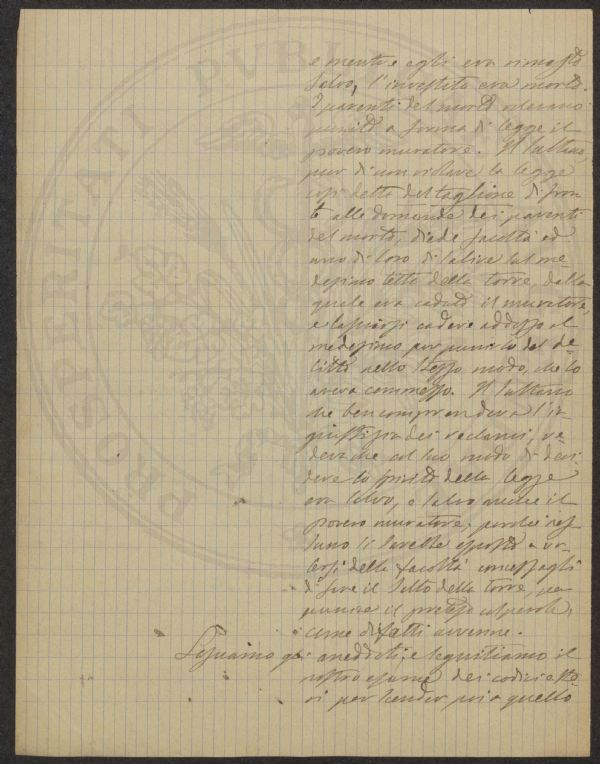 e mentre egli era rimasto
salvo, l'investito era morto.
I parenti del morto volevano
punito a forma di legge il
povero muratore. Il Sultano,
pur di non violare la legge
così detta del taglione di fron
te alle domande dei parenti
del morto, diede facoltà ad
uno di loro di salire sul me-
desimo tetto della torre, dalla
quale era caduto il muratore,
e lasciarsi cadere addosso al
medesimo per punirlo del de-
litto nello stesso modo, che lo
aveva commesso. Il Sultano
che ben comprendeva l'in
giustizia dei reclami, ve-
deva che col suo modo di deci
dere lo spirito della legge
era salvo, e salvo anche il
povero muratore; perchè nes
suno si sarebbe esposto a va-
lersi della facoltà concessagli
di fare il salto della torre, per
punire il preteso colpevole,
come difatti avvenne.
Lasciamo gli aneddoti, e seguitiamo il
nostro esame dei codici e
per scender poi a quello
PROSPERITATI PUBLI